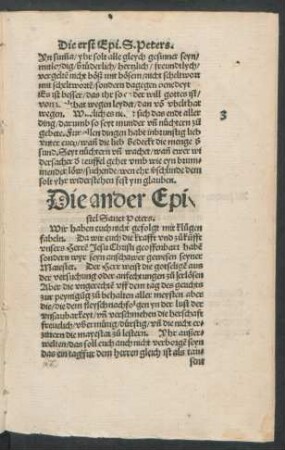 Die erst Epi. S. Peters.
Yn summa/yhr solt alle gleych gesinnet seyn/
mitleydig/brüderlich/hertzlich/freundtlych/
vergeltē nicht böß mit bösem/nicht scheltwort
mit scheltwortē sondern dagegen benedeyt
Es ist besser/das yhr so der will gottes ist/
von that wegen leydet/dan vō vbelthat
wegen. sich das endt aller
ding/darumb so seyt munder vñ nüchtern zů
gebete. Fur allen dingen habt inbrunstig lieb
vnter euch/wan die lieb bedeckt die menge d
sund. Seyt nüchtern vñ wachet/wan ewer wi
dersacher d teuffel gehet vmb wie eyn brum-
mendet löw/suchende/wen ehr vschlinde dem
solt yhr widerstehen fest ym glauben.
3
Die ander Epi-
stel Sanct Peters.
Wir haben euch nicht gefolgt mit klůgen
fabeln. Da wir euch die krafft vnd zůkufft
vnsers Herrē Jesu Christi geoffenbart habē
sondern wye seyn anschawer gewesen seyner
Mayster. Der Herr weist die gotselige auß
der versuchung oder anfechtungen zů erlösen
Aber die vngerechtē vff dem tag des gerichts
zur peynigūg zů behalten aller meysten aber
die/die dem fleysch nachfolgen yn der lust der
vnsauberkeyt/vñ verschmehen die herschafft
freuelich/vbermütig/dürstig/vñ die nicht er
zittern die mayestat zů lestern. Yhr außer-
welten/das soll euch auch nicht verborgē seyn
das ein tag für dem herren gleich ist als tau-
sent